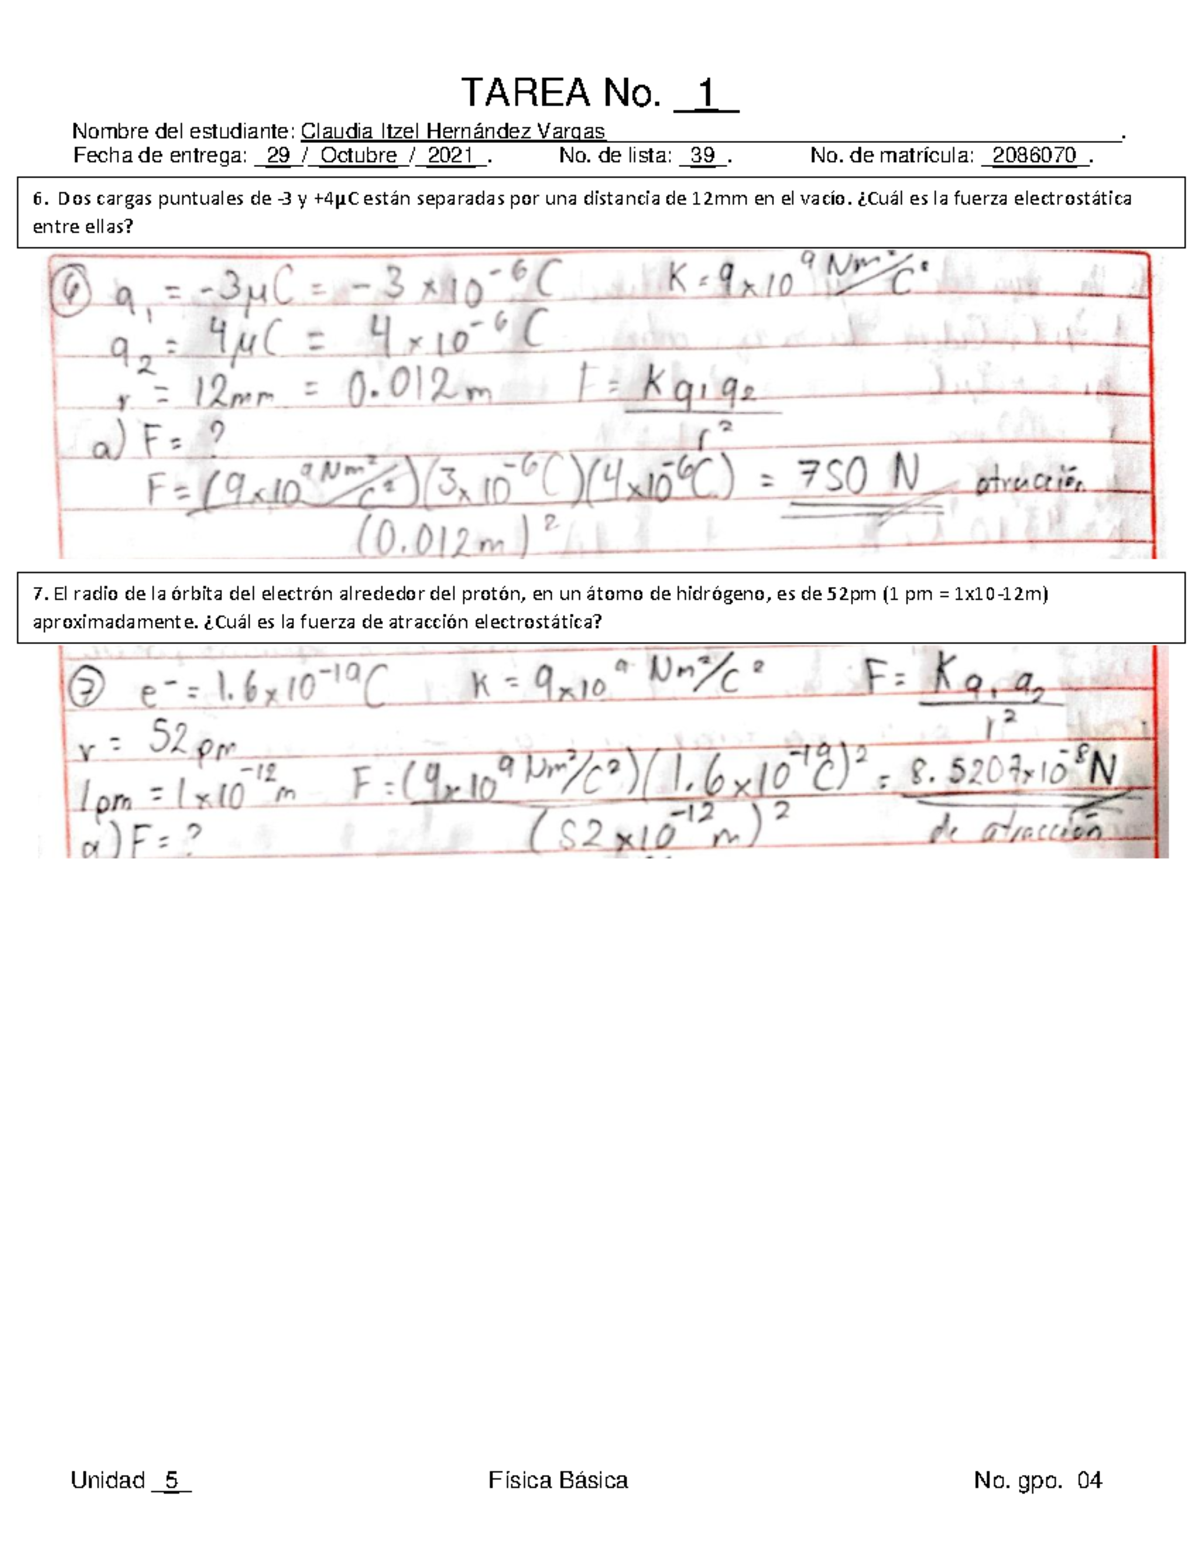 TAREA No. 1
Nombre del estudiante: Claudia Itzel Hernández Vargas.
Fecha de entrega: 29 / Octubre / 2021. No. de lista: 39. No. de matrícula: 2086070.
6. Dos cargas puntuales de -3 y +4µC están separadas por una distancia de 12mm en el vacío. ¿Cuál es la fuerza electrostática
entre ellas?
⑥ q₁ = -3µC = -3 x10⁻⁶ C K = 9x10⁹ Nm²/C²
q₂ = 4µC = 4 x10⁻⁶ C
r = 12mm = 0.012m F = Kq₁q₂
r²
a) F = ?
F = (9x10⁹ Nm²/C²)(3x10⁻⁶C)(4x10⁻⁶C) = 750 N atracción
(0.012m)²
7. El radio de la órbita del electrón alrededor del protón, en un átomo de hidrógeno, es de 52pm (1 pm = 1x10-12m)
aproximadamente. ¿Cuál es la fuerza de atracción electrostática?
⑦ e⁻ = 1.6x10⁻¹⁹C K = 9x10⁹ Nm²/C² F = Kq₁q₂
r²
r = 52pm
1pm = 1x10⁻¹²m F = (9x10⁹ Nm²/C²)(1.6x10⁻¹⁹C)² = 8.5207x10⁻⁸N
a) F = ? (52x10⁻¹²m)² de atracción
Unidad 5 Física Básica No. gpo. 04